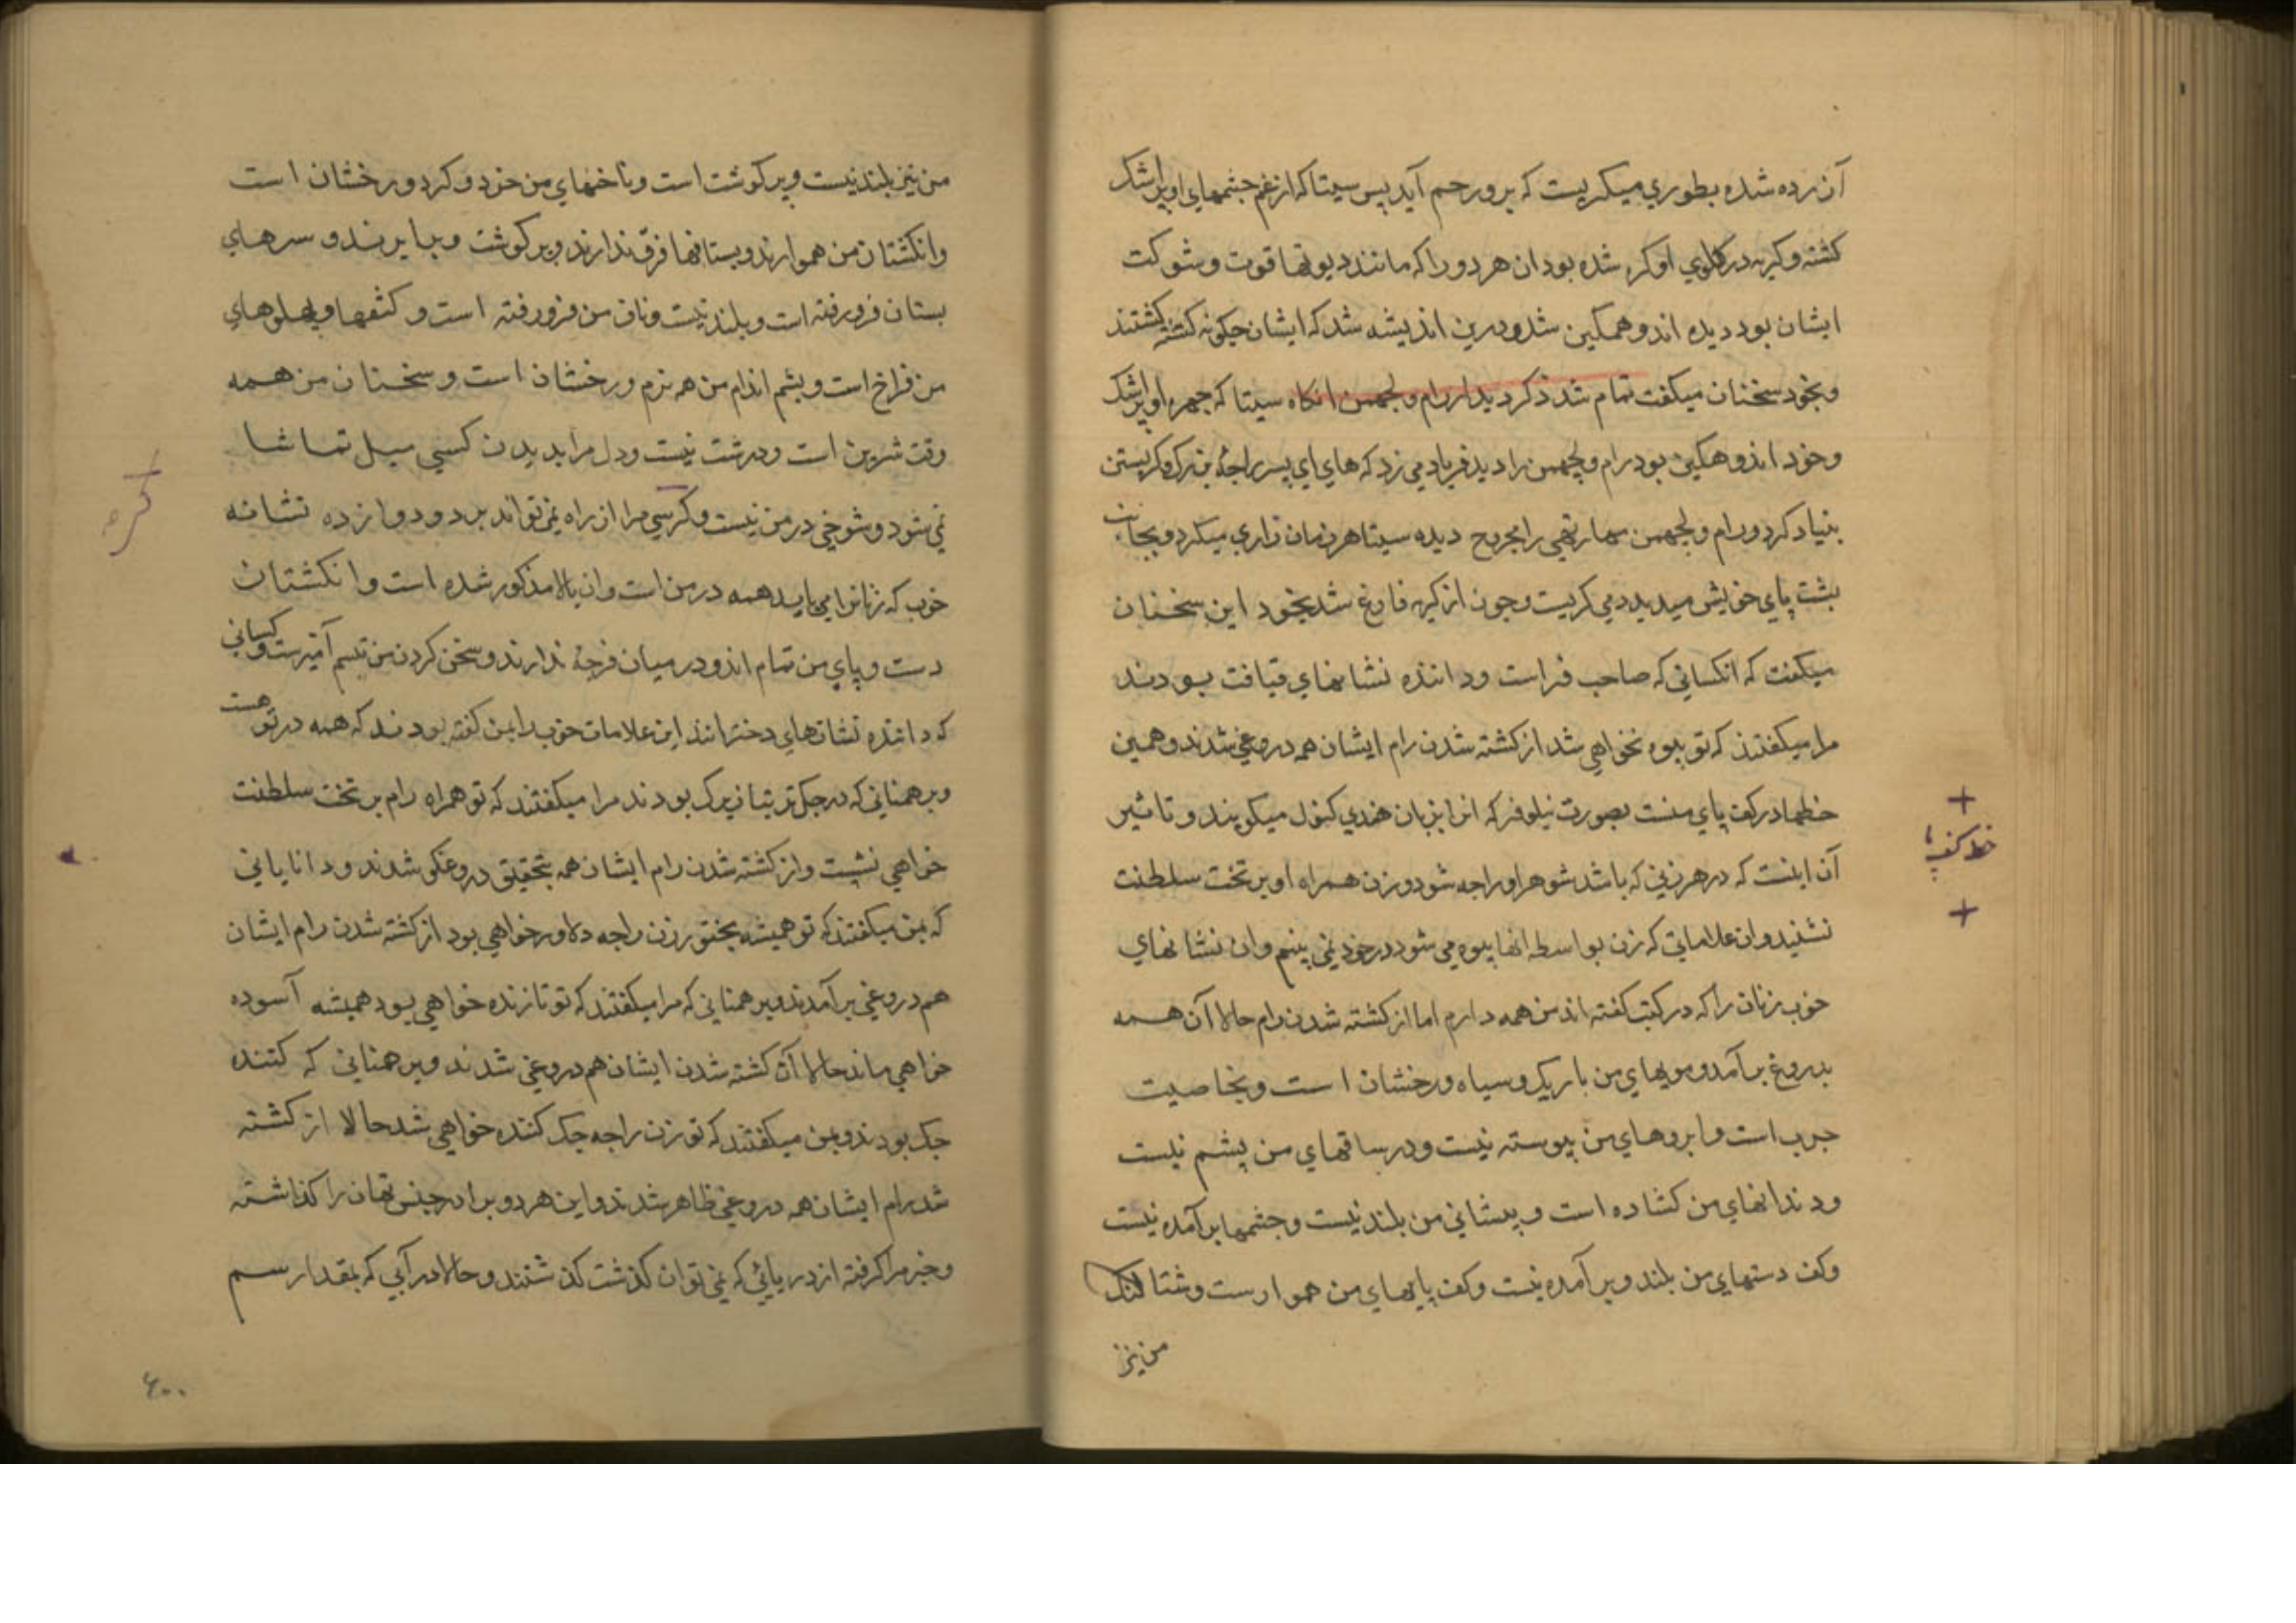 آزرده شده بطوري ميكريست كه برو رحم آيد پس سيتا كه از غم چشمهاي او پر اشك
كشته و كريه در كلوي او كره شده بود ان هر دو را كه مانند ديوتها قوت و شوكت
ايشان بود ديده اندوهمكين شد و درين انديشه شد كه ايشان چكونه كشته كشتند
و بخود سخنان ميكفت تمام شد ذكر ديدار رام و لچهمن انكاه سيتا كه چهره او پر اشك
و خود اندوهكين بود رام و لچهمن را ديد فرياد مي زد كه هاي اي پسر راجۀ بزرك و كريستن
بنياد كرد و رام و لچهمن مهارتهي را مجروح ديده سيتا هر زمان زاري ميكرد و بجانب
پشت پاي خويش ميديد و مي كريست و چون از كريه فارغ شد بخود اين سخنان
ميكفت كه انكساني كه صاحب فراست و داننده نشانهاي قيافت بودند
مرا ميكفتند كه تو بيوه نخواهي شد از كشته شدن رام ايشان همه دروغي شدند و همين
خطها در كف پاي منست بصورت نيلوفر كه انرا بزبان هندي كنول ميكويند و تاثير
آن اينست كه در هر زني كه باشد شوهر او راجه شود و زن همراه او بر تخت سلطنت
نشيند و ان علاماتي كه زن بواسطه انها بيوه مي شود در خود نمي بينم و ان نشانهاي
خوب زنان را كه در كتب كفته اند من همه دارم اما از كشته شدن رام حالا آن همه
بدروغ برآمد و مويهاي من باريك و سياه و رخشان است و بخاصيت
چرب است و ابروهاي من پيوسته نيست و در ساقهاي من پشم نيست
و دندانهاي من كشاده است و پيشاني من بلند نيست و چشمها برآمده نيست
و كف دستهاي من بلند و برآمده نيست و كف پايهاي من هموارست و شتالنك
من نيز
خط كف پا
من نيز بلند نيست و پر كوشت است و ناخنهاي من خرد و كرد و رخشان است
و انكشتان من هموارند و پستانها فرق ندارند و پر كوشت و برابرند و سرهاي
پستان فرو رفته است و بلند نيست و ناف من فرو رفته است و كتفها و پهلوهاي
من فراخ است و پشم اندام من هم نرم و رخشان است و سخنان من همه
وقت شيرين است و درشت نيست و دل مرا بديدن كسي ميل تماشا
نمي شود و شوخي در من نيست و كرسي مرا از راه نمي تواند برد و دوازده نشانه
خوب كه زنانرا مي بايد همه در من است و ان بالا مذكور شده است و انكشتان
دست و پاي من تمام اند و در ميان فرجۀ ندارند و سخن كردن من تبسم آميزست و كساني
كه داننده نشانهاي دخترانند اين علامات خوب را بمن كفته بودند كه همه در تو هست
و برهمناني كه در جك تربيتا بزرك بودند مرا ميكفتند كه تو همراه رام بر تخت سلطنت
خواهي نشست و از كشته شدن رام ايشان همه بتحقيق دروغكو شدند و داناياني
كه بمن ميكفتند كه تو هميشه بختور زن راجه دلاور خواهي بود از كشته شدن رام ايشان
هم دروغي برآمدند و برهمناني كه مرا ميكفتند كه تو تا زنده خواهي بود هميشه آسوده
خواهي ماند حالا از كشته شدن ايشان هم دروغي شدند و برهمناني كه كننده
جك بودند و بمن ميكفتند كه تو زن راجه جك كننده خواهي شد حالا از كشته
شد رام ايشان همه دروغي ظاهر شدند و اين هر دو برادر جنس تهان را كذاشته
و خبر مرا كرفته از دريائي كه نمي توان كذشت كذشتند و حالا در آبي كه بمقدار سم
۶۰۰